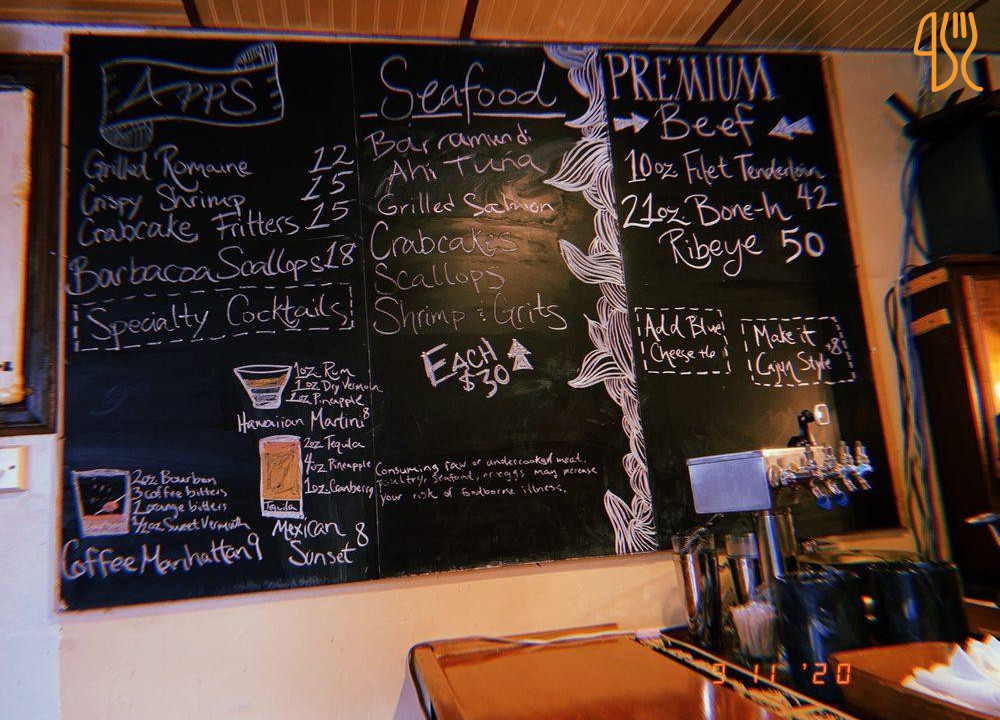 Apps
Grilled Romaine 12
Crispy Shrimp 15
Crabcake Fritters 15
Barbacoa Scallops 18
Specialty Cocktails
1oz Rum
1oz Dry Vermouth
1oz Pineapple
Hawaiian Martini 8
2oz Tequila
4oz Pineapple
1oz Cranberry
Tequila
Mexican 8
Sunset
2oz Bourbon
3 coffee bitters
2 orange bitters
1/2oz Sweet Vermouth
Coffee Manhattan 9
Seafood
Barramundi
Ahi Tuna
Grilled Salmon
Crabcakes
Scallops
Shrimp & Grits
Each
$30
Consuming raw or undercooked meat,
poultry, seafood, or eggs may increase
your risk of foodborne illness.
PREMIUM
Beef
10oz Filet Tenderloin
42
21oz Bone-In
Ribeye 50
Add Blue
Cheese +6
Make it
Cajun Style +8
9 11 '20